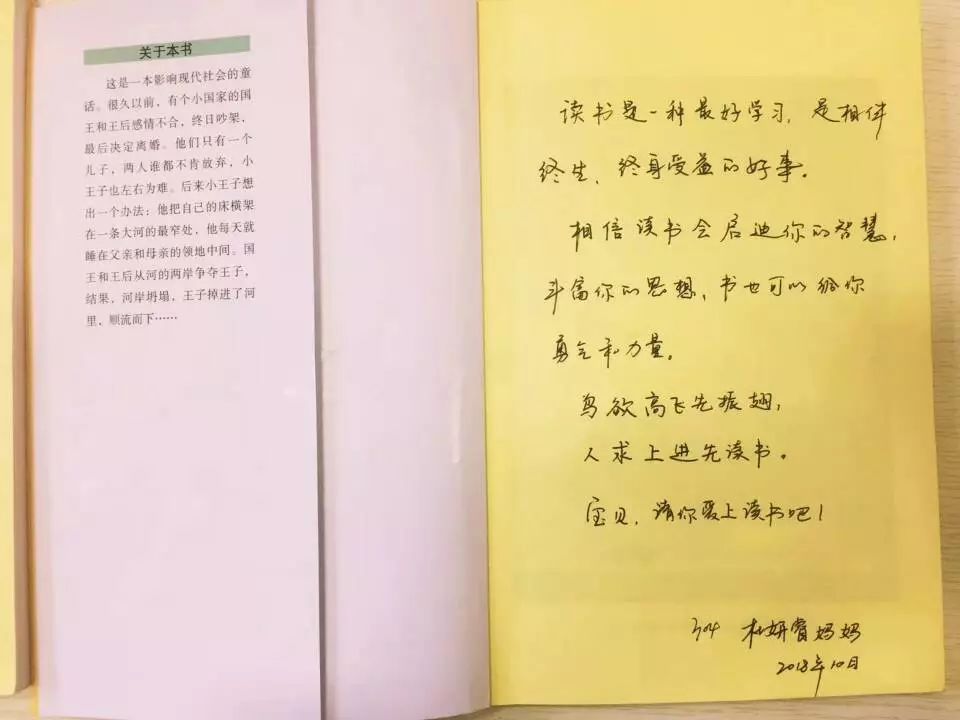 关于本书
这是一本影响现代社会的童
话。很久以前，有个小国家的国
王和王后感情不合，终日吵架，
最后决定离婚。他们只有一个
儿子，两人谁都不肯放弃，小
王子也左右为难。后来小王子想
出一个办法：他把自己的床横架
在一条大河的最窄处，他每天就
睡在父亲和母亲的领地中间。国
王和王后从河的两岸争夺王子，
结果，河岸坍塌，王子掉进了河
里，顺流而下……
读书是一种最好学习，是相伴
终生、终身受益的好事。
相信读书会启迪你的智慧，
丰富你的思想、书也可以给你
勇气和力量。
鸟欲高飞先振翅，
人求上进先读书。
宝贝，请你爱上读书吧！
304 杜妍睿妈妈
2018年10日